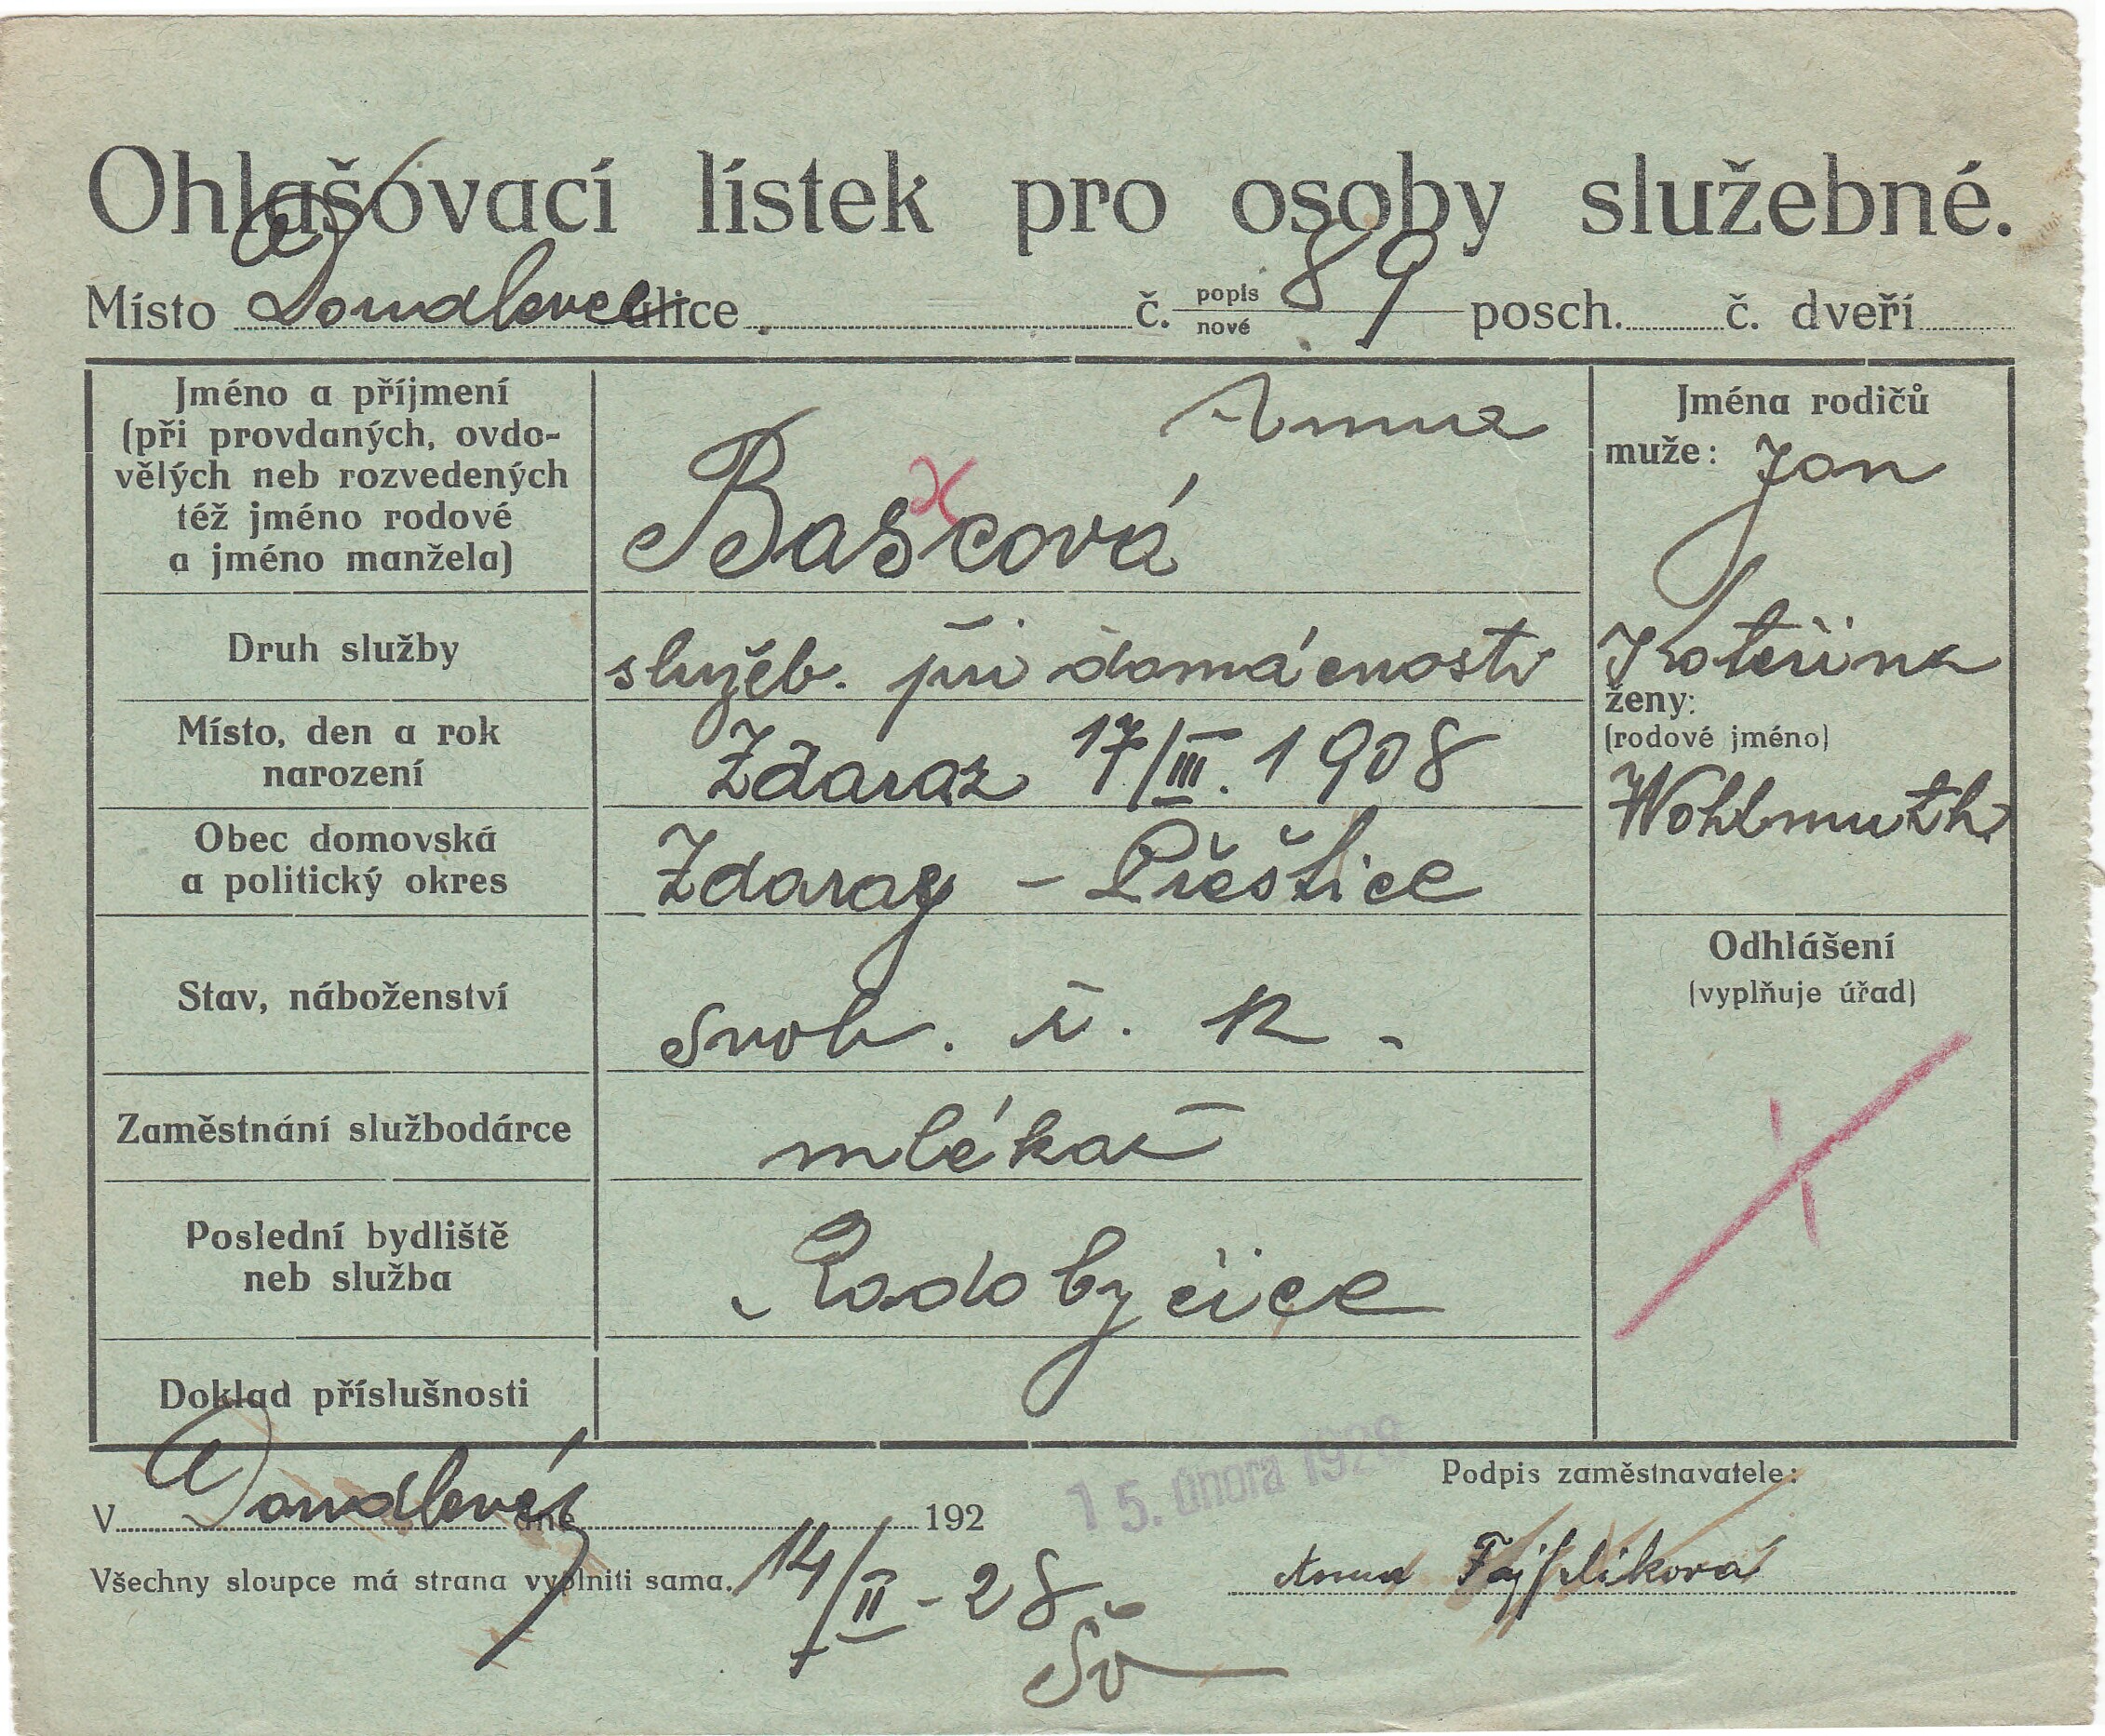 Ohlašovací lístek pro osoby služebné.
Místo Doudlevce ulice č. popis nové 89 posch. č. dveří
Jméno a příjmení
(při provdaných, ovdo-
vělých neb rozvedených
též jméno rodové
a jméno manžela)
Anna
Bašcová
Jména rodičů
muže: Jan
Kateřina
ženy:
(rodové jméno)
Wohlmuth
Druh služby
služeb. při domácnosti
Místo, den a rok
narození
Ždaraz 17/III. 1908
Obec domovská
a politický okres
Zdaraz – Přeštice
Stav, náboženství
svob. ř. k.
Odhlášení
(vyplňuje úřad)
Zaměstnání službodárce
mlékař
Poslední bydliště
neb služba
Radobyčice
Doklad příslušnosti
V Doudlevcích dne 192
15. února 1928
Podpis zaměstnavatele:
Všechny sloupce má strana vyplniti sama.
14/II - 28
Anna
Šv